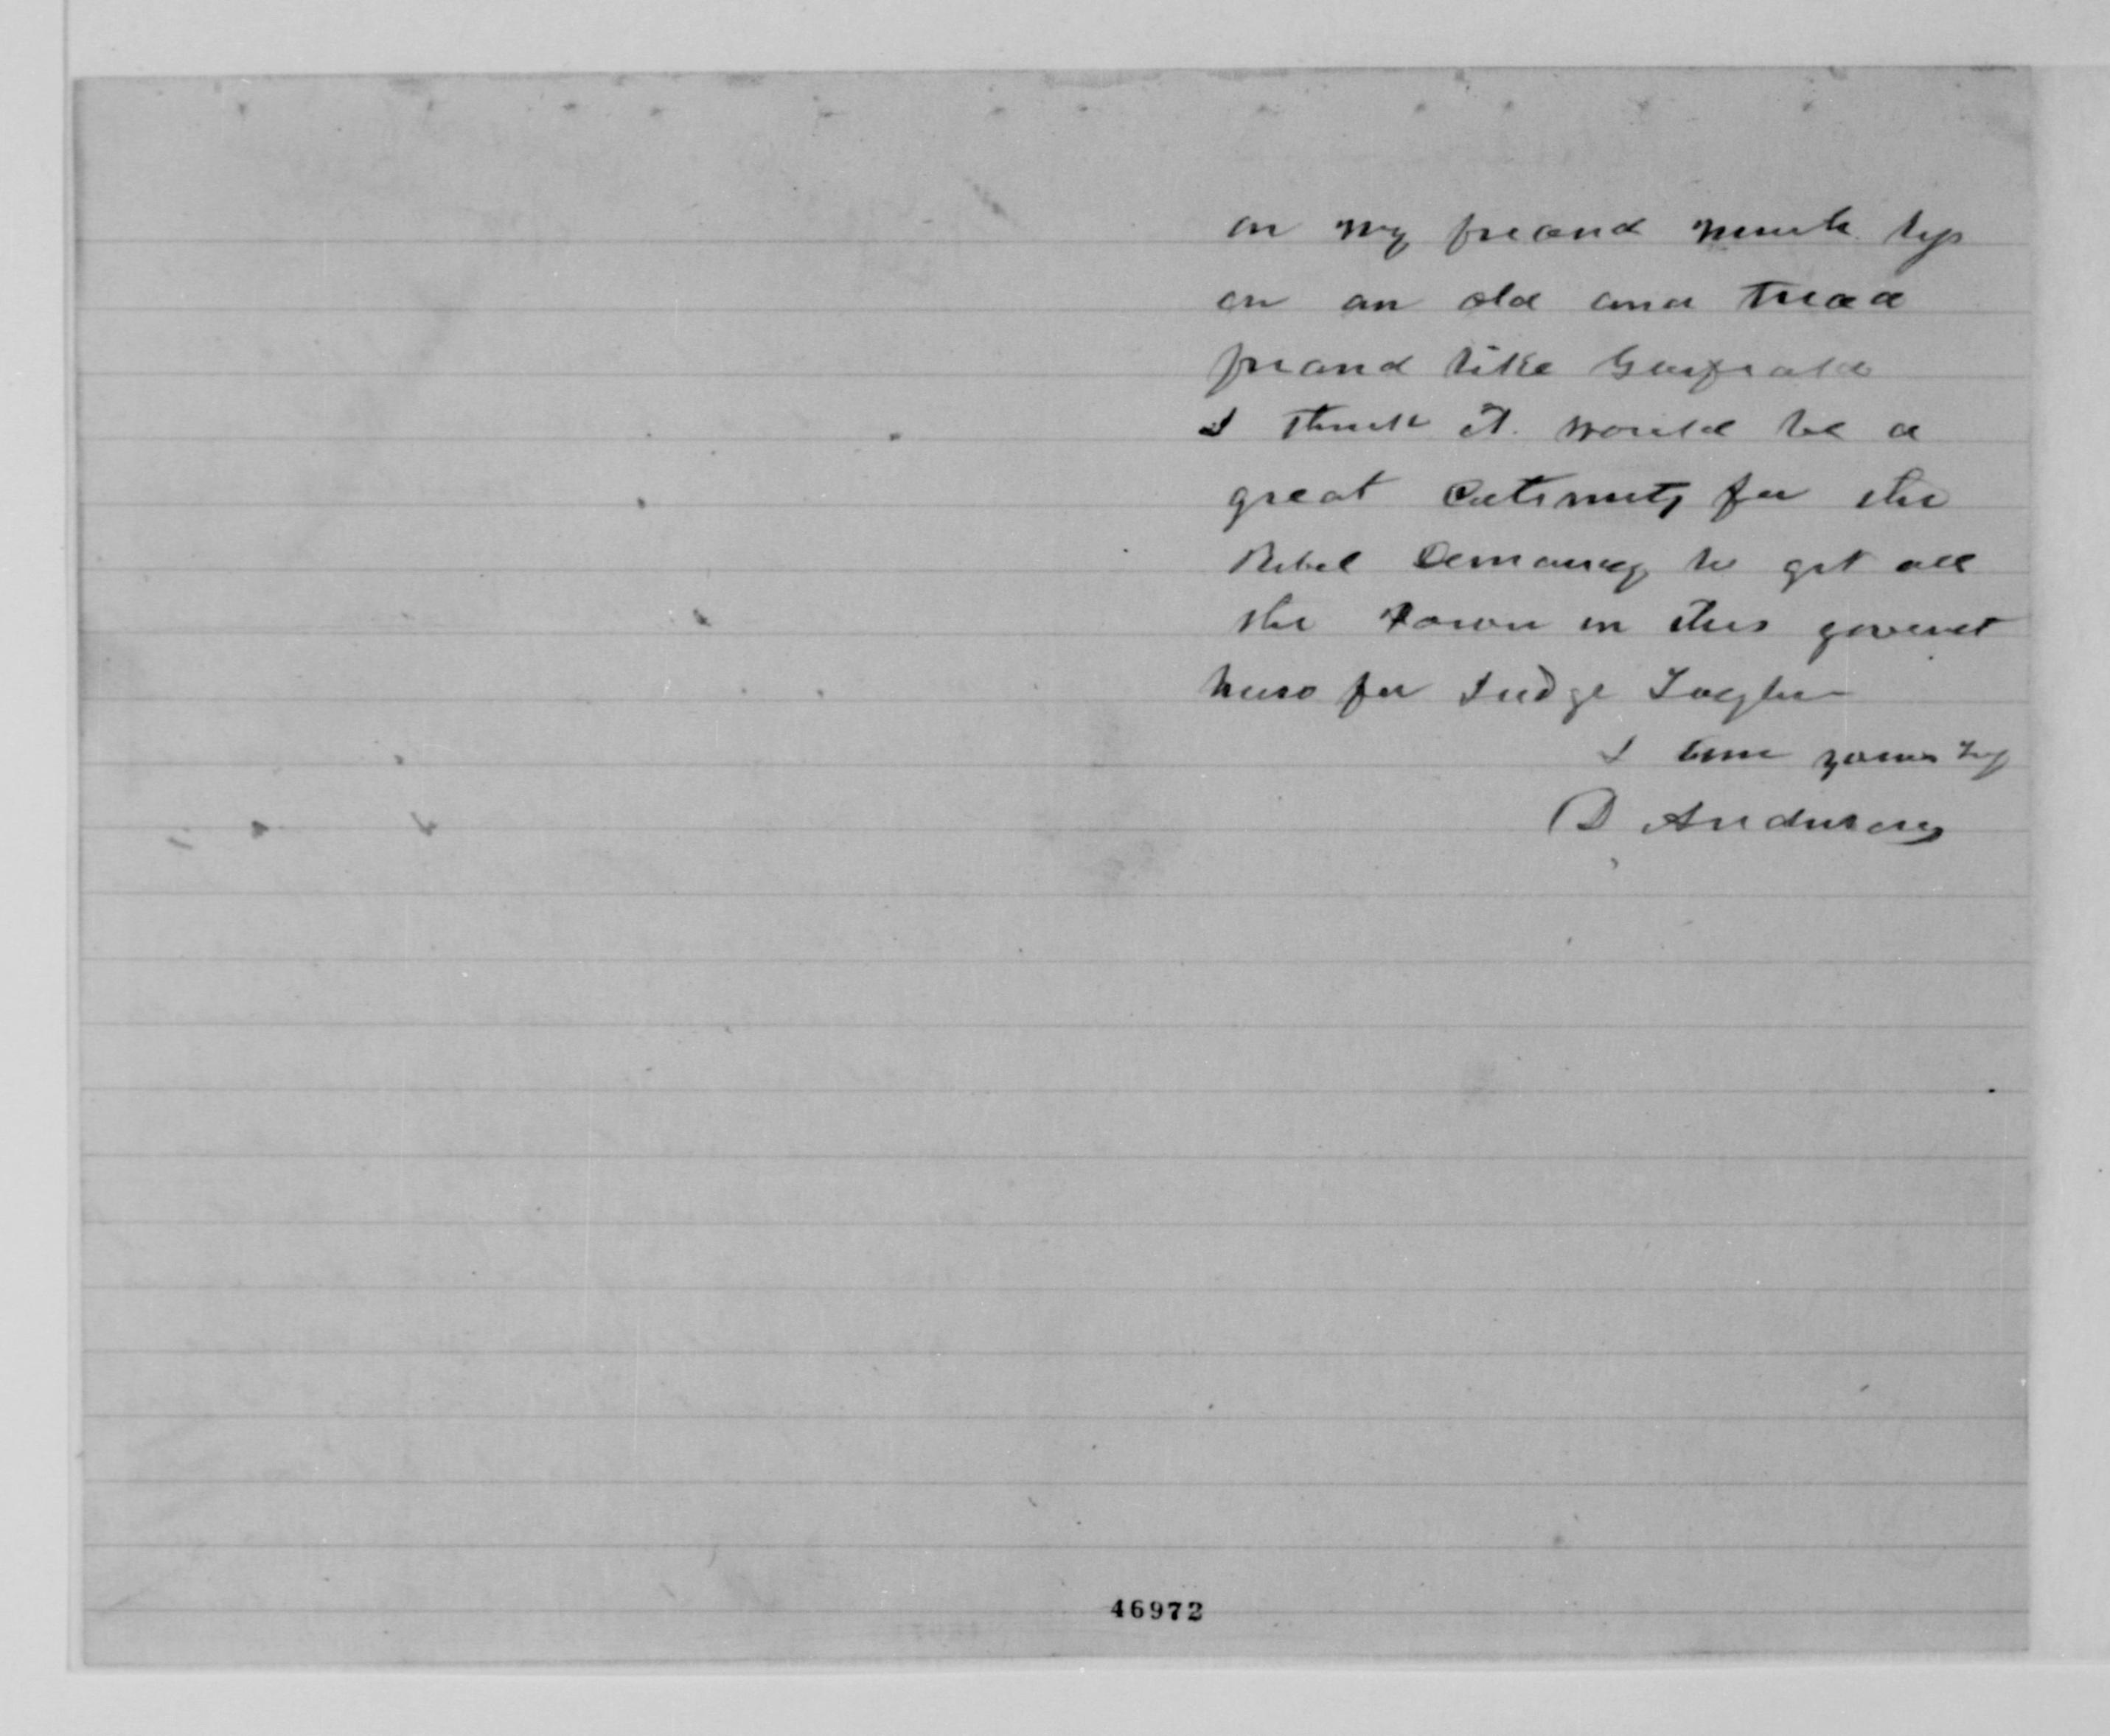 on my freand much lys
on an old and tread
freand like Garfeald
I think it would be a
great Calamity for the
Rebel Demoncy to get all
the Power in this goveret
huro for Judge Tayler
I am yours try
D Anderson
46972